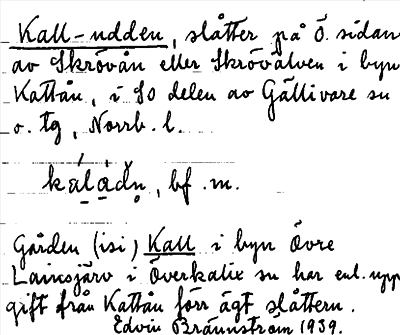 Kall-udden, slåtter på Ö. sidan
av Skrövån eller Skrövälven i byn
Kattån, i SO delen av Gällivare sn
o. tg, Norrb. l.
kálàdn̥, bf. m.
Gården (isi) Kall i byn Övre
Lainsjärv i Överkalix sn har enl. upp
gift från Kattån förr ägt slåttern.
Edvin Brännström 1939.